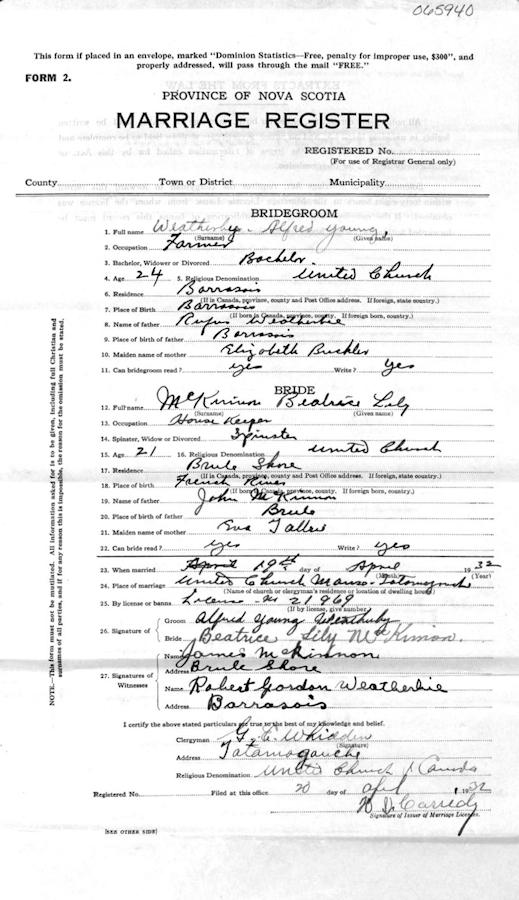 065940
This form if placed in an envelope, marked "Dominion Statistics—Free, penalty for improper use, $300", and
properly addressed, will pass through the mail "FREE."
FORM 2.
PROVINCE OF NOVA SCOTIA
MARRIAGE REGISTER
REGISTERED No.
(For use of Registrar General only)
County Town or District Municipality
BRIDEGROOM
1. Full name Weatherby Alfred Young,
(Surname) (Given name)
2. Occupation Farmer
3. Bachelor, Widower or Divorced Bachelor
4. Age 24 5. Religious Denomination United Church
6. Residence Barrasois
(If in Canada, province, county and Post Office address. If foreign, state country.)
7. Place of Birth Barrasois
(If born in Canada, province, county. If foreign born, country.)
8. Name of father Rufus Weatherbie
9. Place of birth of father Barrasois
10. Maiden name of mother Elizabeth Buckler
11. Can bridegroom read? yes Write? yes
BRIDE
12. Full name McKinnon Beatrice Lily
(Surname) (Given name)
13. Occupation House Keeper
14. Spinster, Widow or Divorced Spinster
15. Age 21 16. Religious Denomination United Church
17. Residence Brule Shore
(If in Canada, province, county and Post Office address. If foreign, state country.)
18. Place of birth French River
(If born in Canada, province, county. If foreign born, country.)
19. Name of father John McKinnon
20. Place of birth of father Brule
21. Maiden name of mother Eva
22. Can bride read? yes Write? yes
23. When married April 19th day of April 1932
(Month) (Year)
24. Place of marriage United Church Manse Tatamagouche
(Name of church or clergyman's residence or location of dwelling house)
25. By license or banns License No 21969
(If by license, give number)
26. Signature of Groom Alfred Young Weatherby
Bride Beatrice Lily McKinnon.
27. Signatures of Witnesses
Name James McKinnon
Address Brule Shore
Name Robert Gordon Weatherbie
Address Barrasois
I certify the above stated particulars are true to the best of my knowledge and belief.
Clergyman G. C. Whidden
(Signature)
Address Tatamagouche
Religious Denomination United Church of Canada
Registered No. Filed at this office 20 day of April 1932
Signature of Issuer of Marriage Licenses.
(SEE OTHER SIDE)
NOTE.—This form must not be mutilated. All information asked for is to be given, including full Christian and
surnames of all parties, and if for any reason this is impossible, the reason for the omission must be stated.